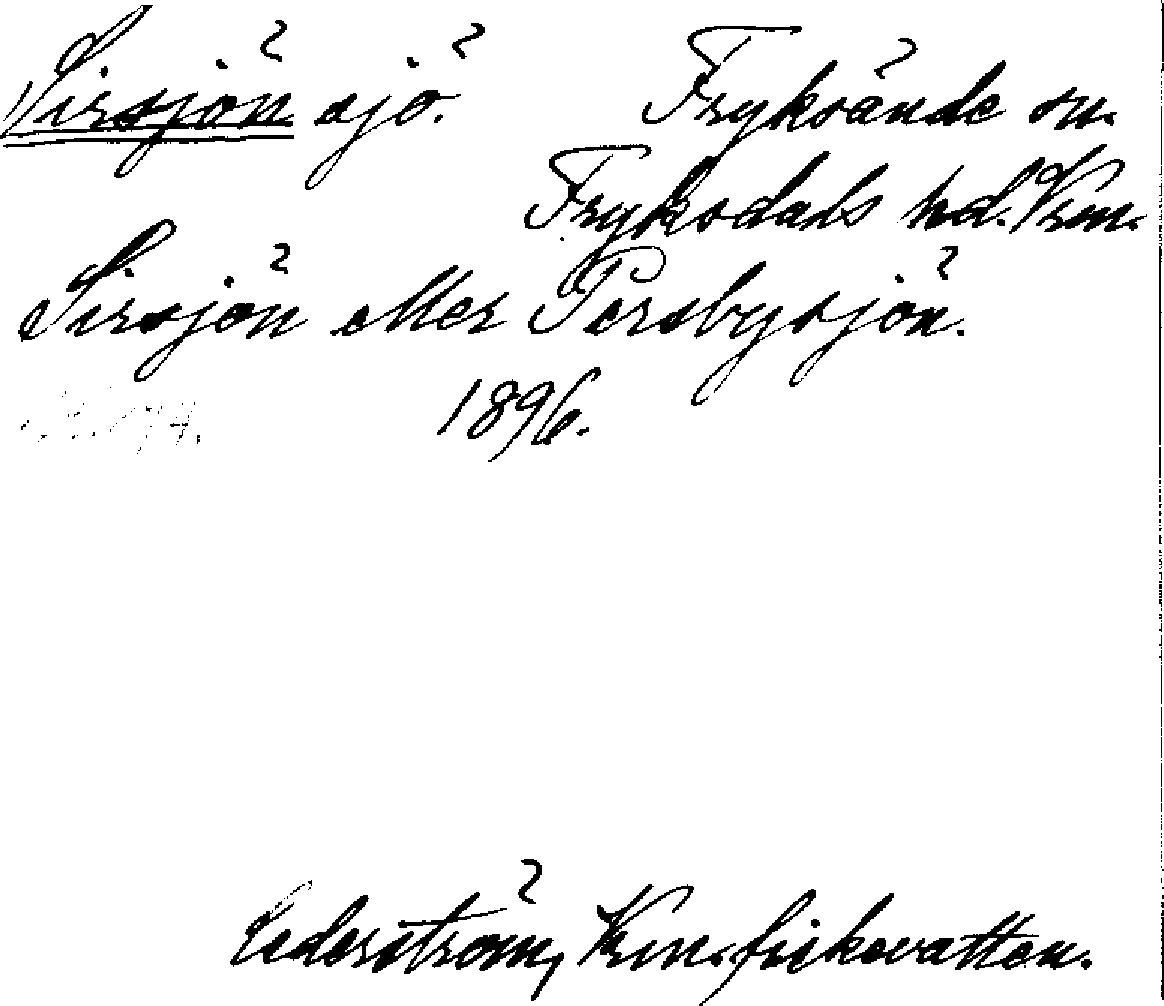 Sirsjön sjö. Fryksände sn.
Fryksdals hd. Vrm.
Sirsjön eller Torsbysjön.
1896.
Cederström, Vrm. fiskevatten.